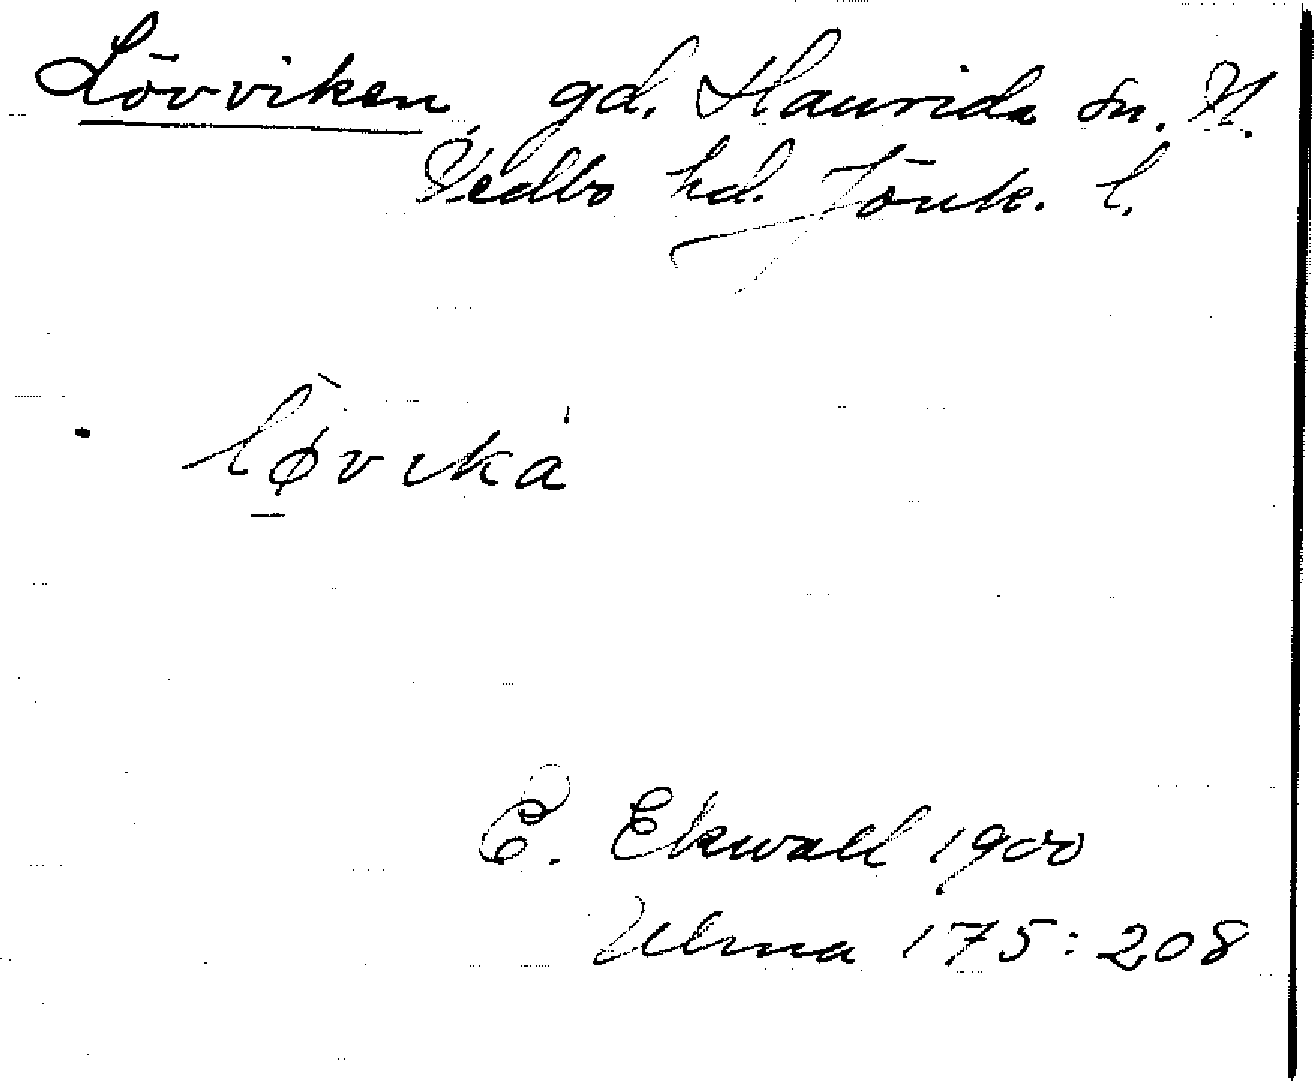 Lövviken, gd. Haurida sn. N.
Vedbo hd. Jönk. l.
lø̀vıká
E. Ekwall 1900
Ulma 175:208